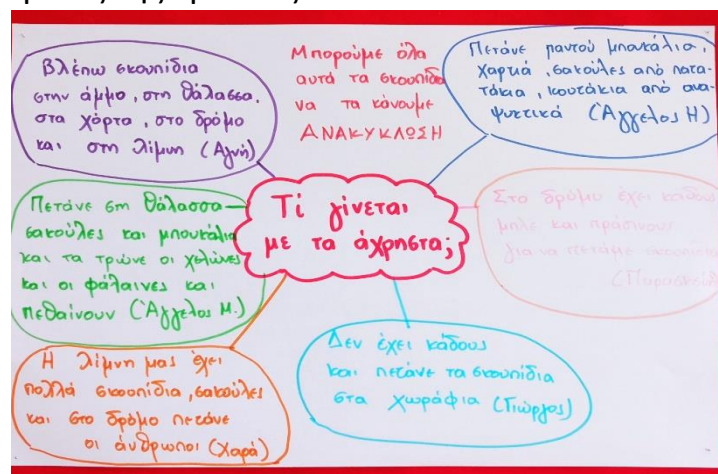 Βλέπω σκουπίδια
στην άμμο, στη θάλασσα,
στα χόρτα, στο δρόμο
και στη λίμνη (Αγνή)
Μπορούμε όλα
αυτά τα σκουπίδια
να τα κάνουμε
ΑΝΑΚΥΚΛΩΣΗ
Πετάνε παντού μπουκάλια,
χαρτιά, σακούλες από πατα-
τάκια, κουτάκια από ανα-
ψυκτικά (Άγγελος Η)
Πετάνε στη θάλασσα
σακούλες και μπουκάλια
και τα τρώνε οι χελώνες
και οι φάλαινες και
πεθαίνουν (Άγγελος Μ.)
Τί γίνεται
με τα άχρηστα;
Στο δρόμο έχει κάδους
μπλε και πράσινους
για να πετάμε σκουπίδια
Η λίμνη μας έχει
πολλά σκουπίδια, σακούλες
και στο δρόμο πετάνε
οι άνθρωποι (Χαρά)
Δεν έχει κάδους
και πετάνε τα σκουπίδια
στα χωράφια (Γιώργος)